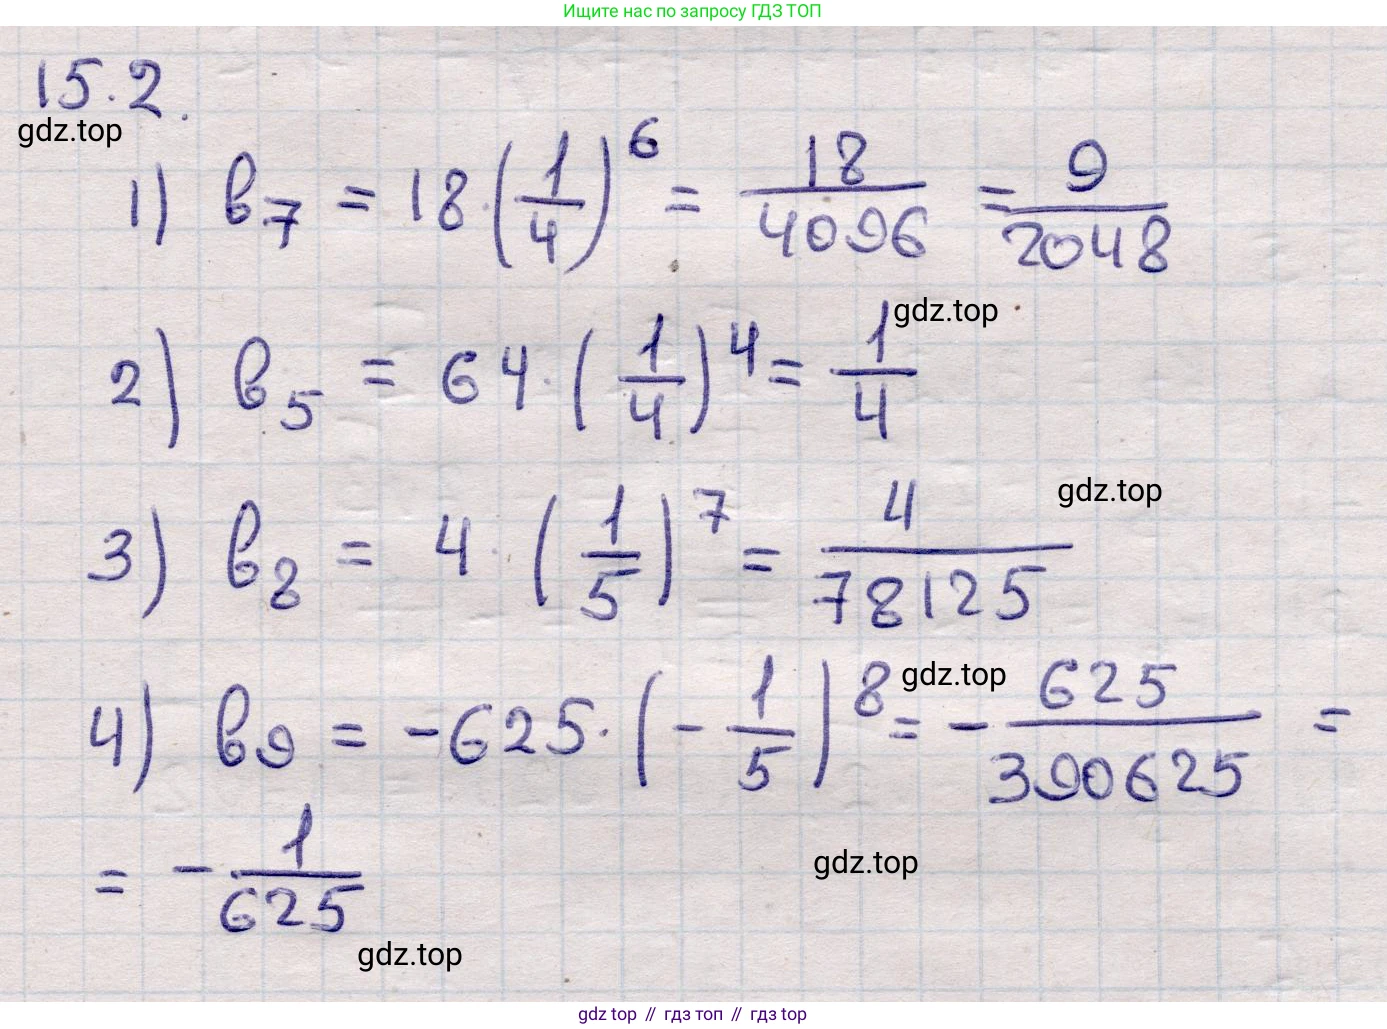 Ищите нас по запросу ГДЗ ТОП
15.2.
gdz.top
1) b₇ = 18·(1/4)⁶ = 18/4096 = 9/2048
gdz.top
2) b₅ = 64·(1/4)⁴ = 1/4
gdz.top
3) b₈ = 4·(1/5)⁷ = 4/78125
gdz.top
4) b₉ = -625·(-1/5)⁸ = -625/390625 =
= -1/625
gdz.top
gdz.top
gdz top // гдз топ // гдз top